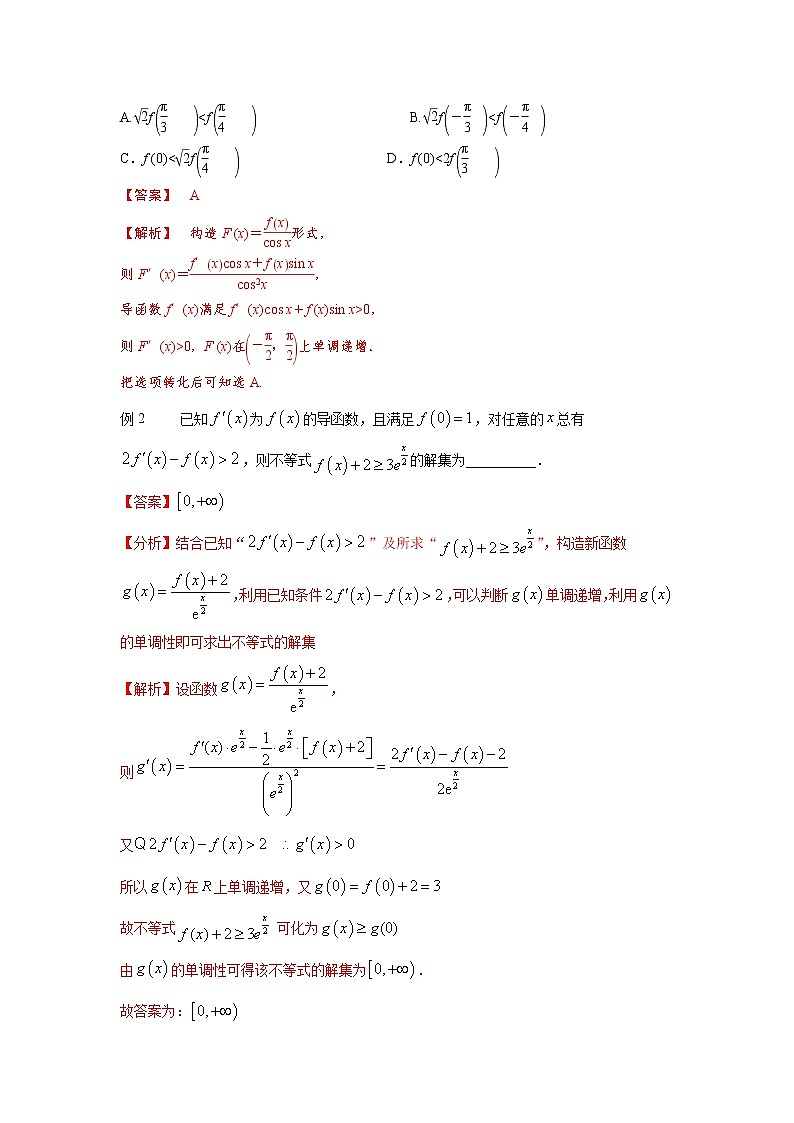 A.√2f(π/3)<f(π/4) B.√2f(-π/3)<f(-π/4)
C．f(0)<√2f(π/4) D．f(0)<2f(π/3)
【答案】 A
【解析】 构造 F(x)＝f(x)/cos x形式，
则 F′(x)＝(f′(x)cos x＋f(x)sin x)/cos²x，
导函数 f′(x)满足 f′(x)cos x＋f(x)sin x>0，
则 F′(x)>0，F(x)在(-π/2，π/2)上单调递增．
把选项转化后可知选 A.
例 2 已知 f′(x)为 f(x)的导函数，且满足 f(0)=1，对任意的 x总有
2f′(x)-f(x)>2，则不等式 f(x)+2≥3e^(x/2)的解集为__________．
【答案】[0,+∞)
【分析】结合已知“2f′(x)-f(x)>2”及所求“f(x)+2≥3e^(x/2)”，构造新函数
g(x)=(f(x)+2)/e^(x/2),利用已知条件2f′(x)-f(x)>2,可以判断g(x)单调递增,利用g(x)
的单调性即可求出不等式的解集
【解析】设函数g(x)=(f(x)+2)/e^(x/2)，
则g′(x)=(f′(x)·e^(x/2)-1/2·e^(x/2)·[f(x)+2])/(e^(x/2))²=(2f′(x)-f(x)-2)/(2e^(x/2))
又Q 2f′(x)-f(x)>2 ∴g′(x)>0
所以g(x)在R上单调递增，又g(0)=f(0)+2=3
故不等式f(x)+2≥3e^(x/2) 可化为g(x)≥g(0)
由g(x)的单调性可得该不等式的解集为[0,+∞)．
故答案为：[0,+∞)